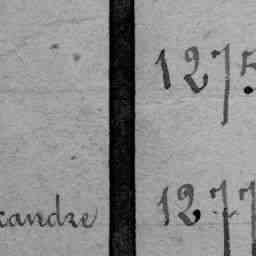 1275
xandre 1277